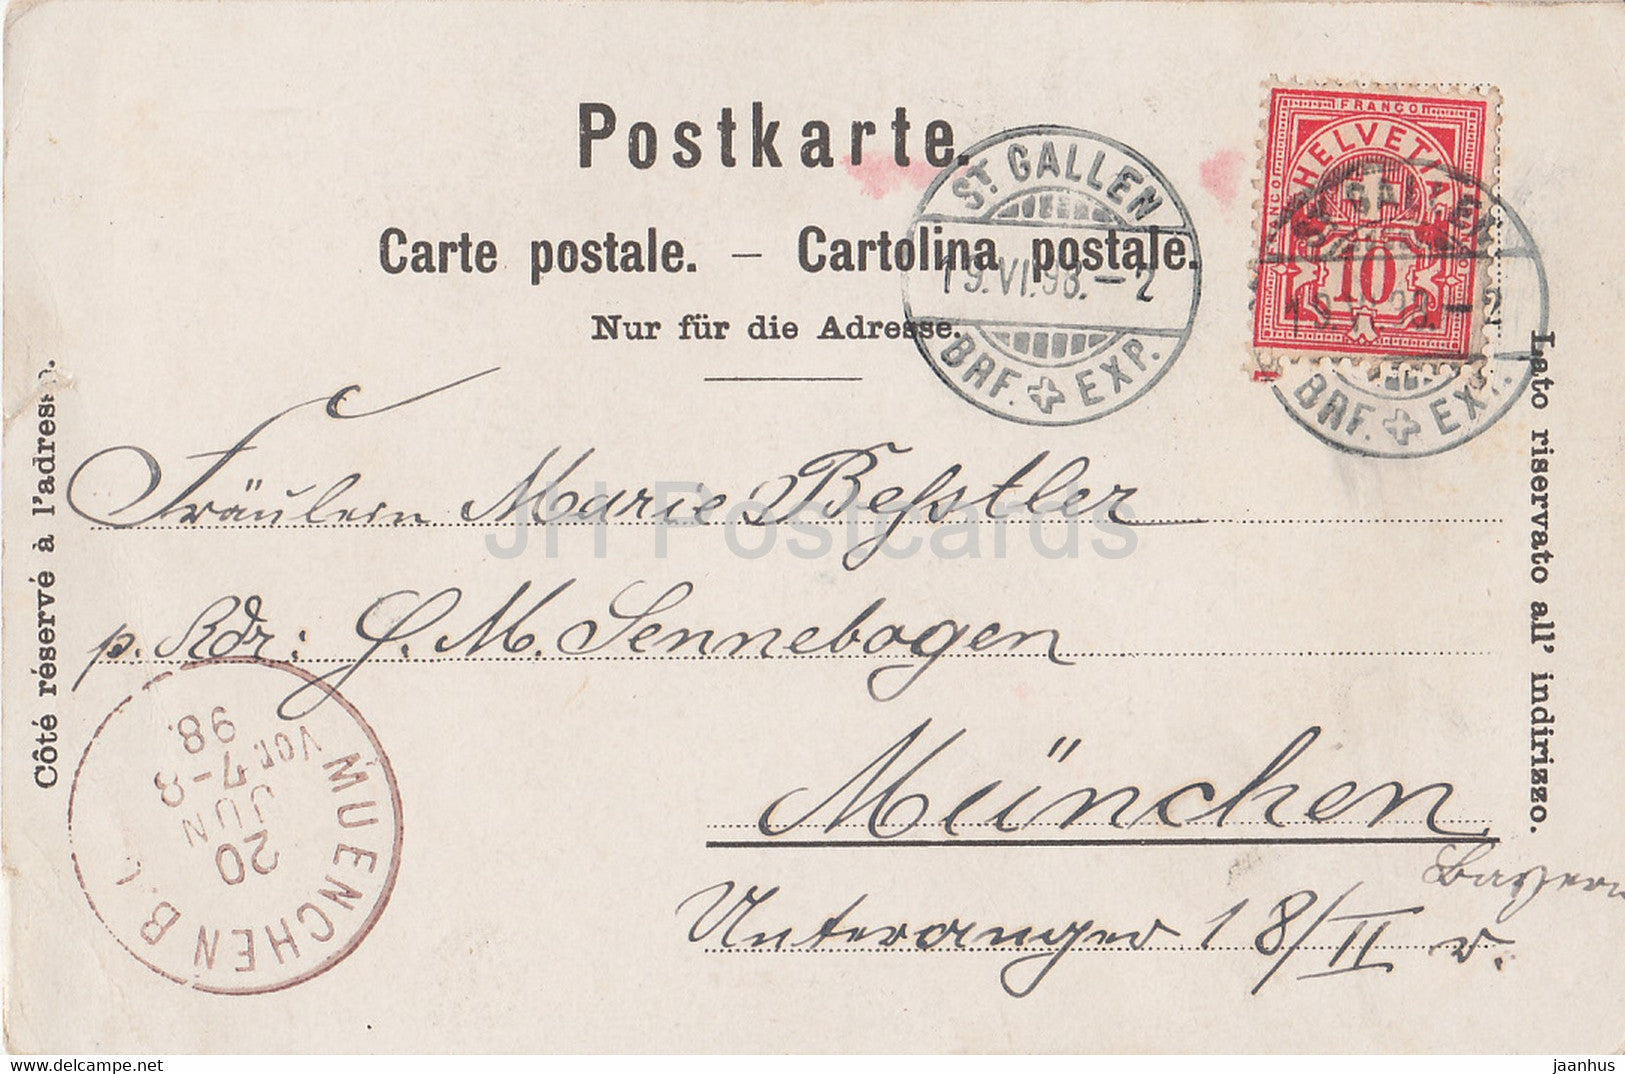 Postkarte.
Carte postale. – Cartolina postale.
Nur für die Adresse.
Côté réservé à l'adresse.
Lato riservato all' indirizzo.
FRANCO
HELVETIA
FRANCO
FRANCO
10
ST. GALLEN
19.VI.98.–2
BRF. EXP.
ST. GALLEN
19.VI.98.–2
BRF. EXP.
Fräulein Marie Beßtler
p. Adr: G. M. Sennebogen
München
Bayern
Unteranger 18/II r.
MUENCHEN B.
20
JUN
7-8
Vor.
98.
JH Postcards
https://www.delcampe.net
jaanhus